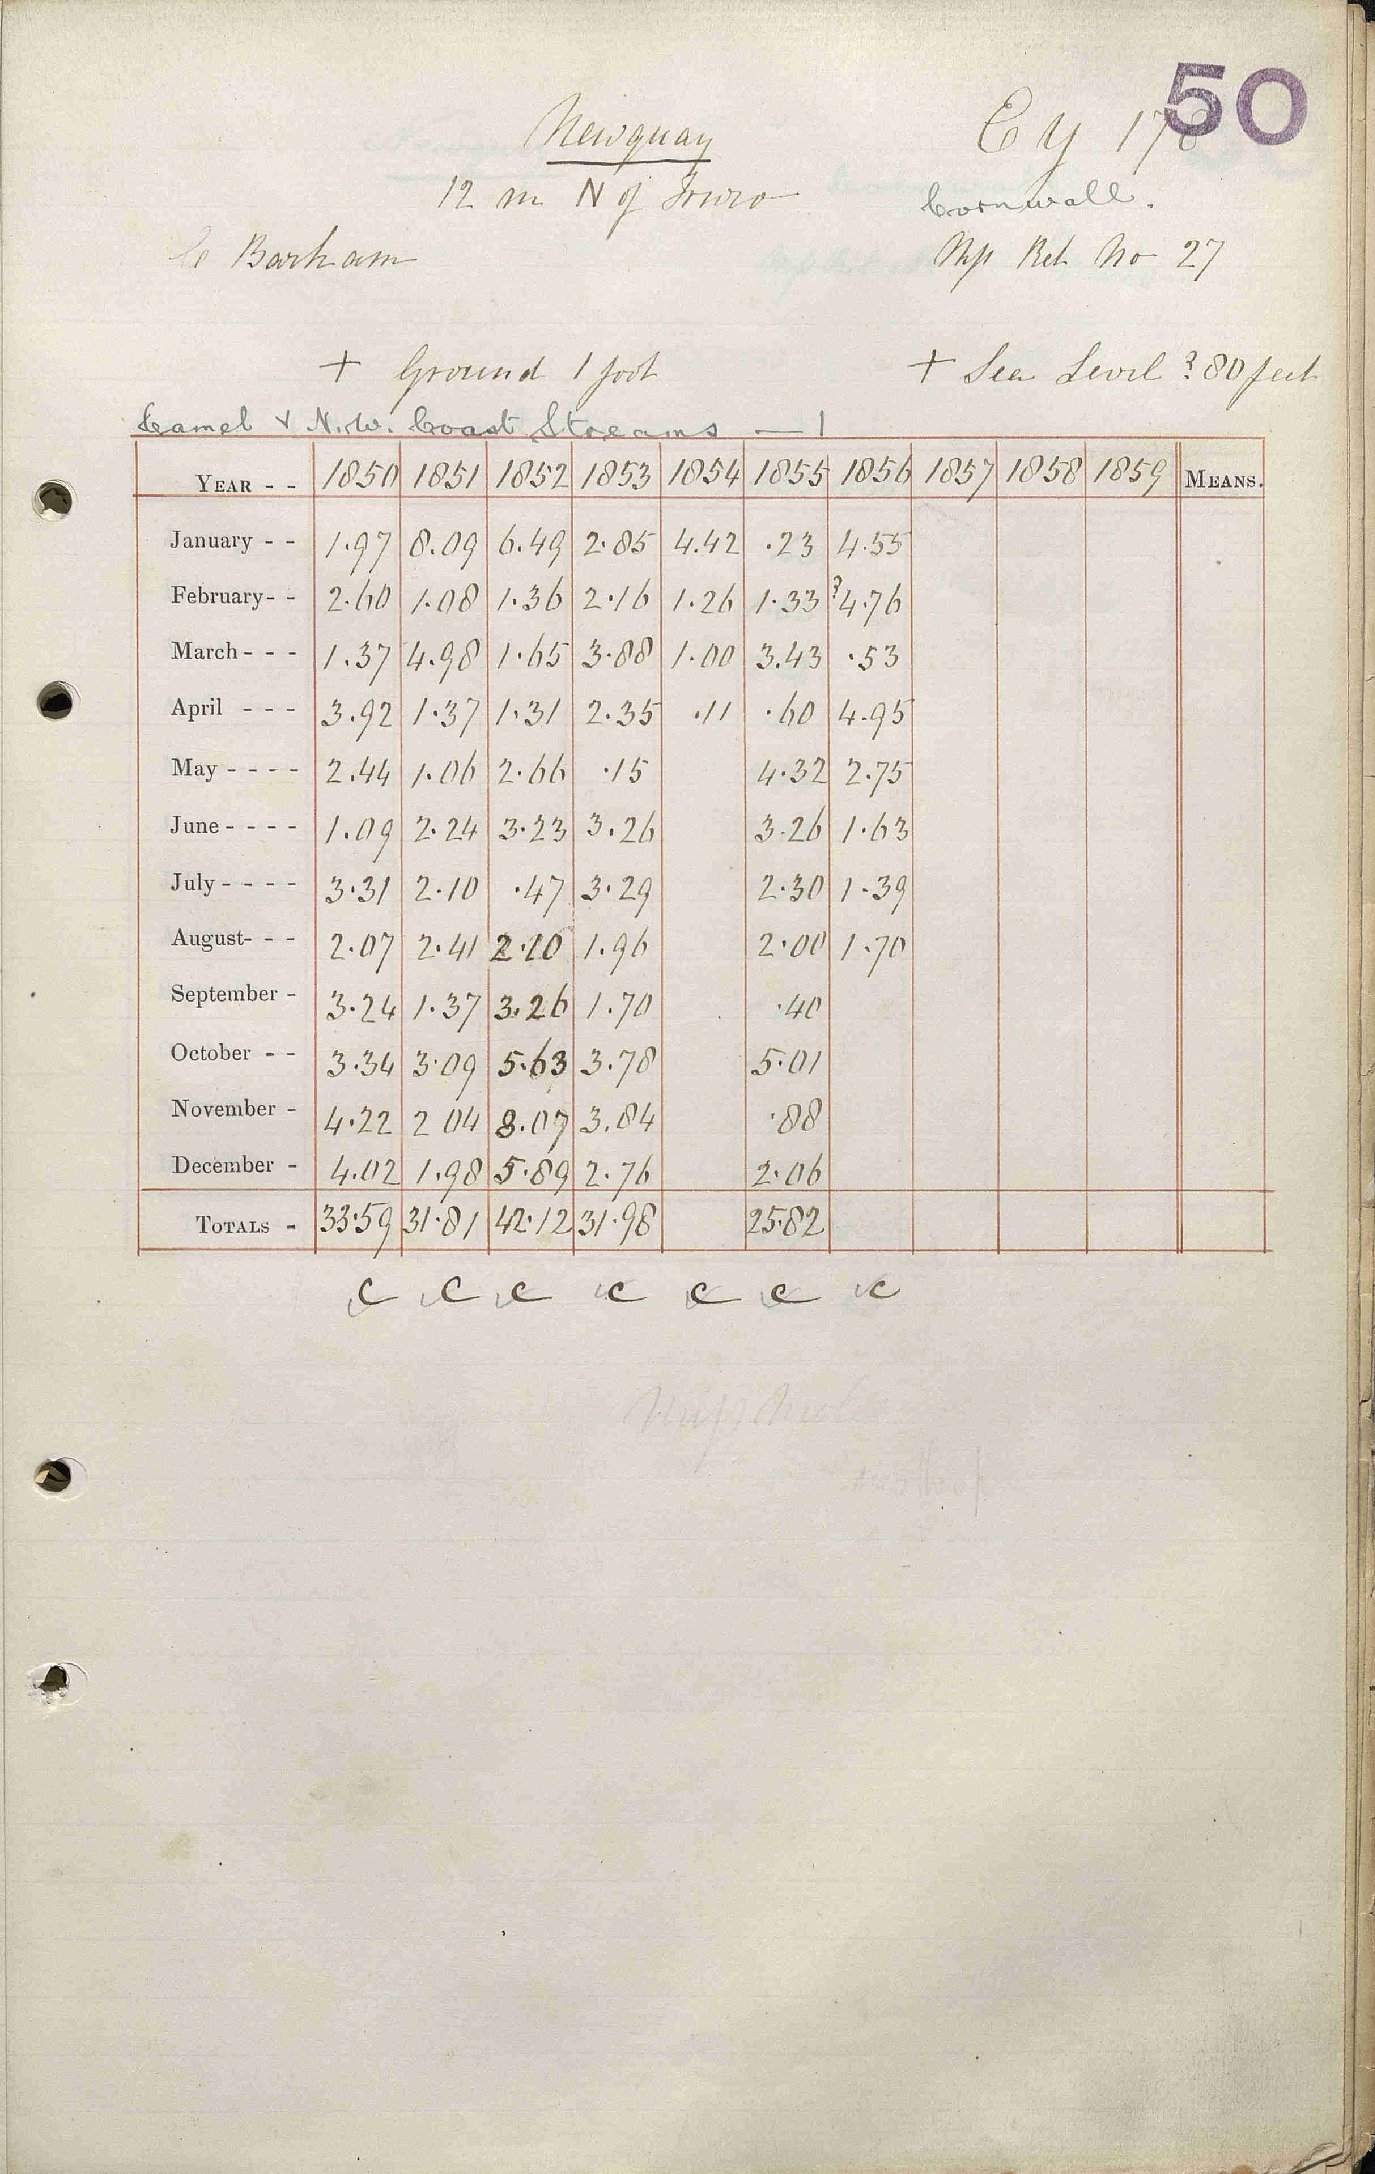 50
Newquay
C y 17
12 m N of Truro
Cornwall.
C Barham
Mp Ret No 27
+ Ground 1 foot
+ Sea Level ? 80 feet
Camel & N.W. Coast Streams — 1
YEAR - - 1850 1851 1852 1853 1854 1855 1856 1857 1858 1859 MEANS.
January - - 1.97 8.09 6.49 2.85 4.42 .23 4.55
February - - 2.60 1.08 1.36 2.16 1.26 1.33 ?4.76
March - - - 1.37 4.98 1.65 3.88 1.00 3.43 .53
April - - - 3.92 1.37 1.31 2.35 .11 .60 4.95
May - - - - 2.44 1.06 2.66 .15 4.32 2.75
June - - - - 1.09 2.24 3.23 3.26 3.26 1.63
July - - - - 3.31 2.10 .47 3.29 2.30 1.39
August - - - 2.07 2.41 2.10 1.96 2.00 1.70
September - 3.24 1.37 3.26 1.70 .40
October - - 3.34 3.09 5.63 3.78 5.01
November - 4.22 2 04 8.07 3.84 .88
December - 4.02 1.98 5.89 2.76 2.06
TOTALS - 33.59 31.81 42.12 31.98 25.82
c c c c c c c